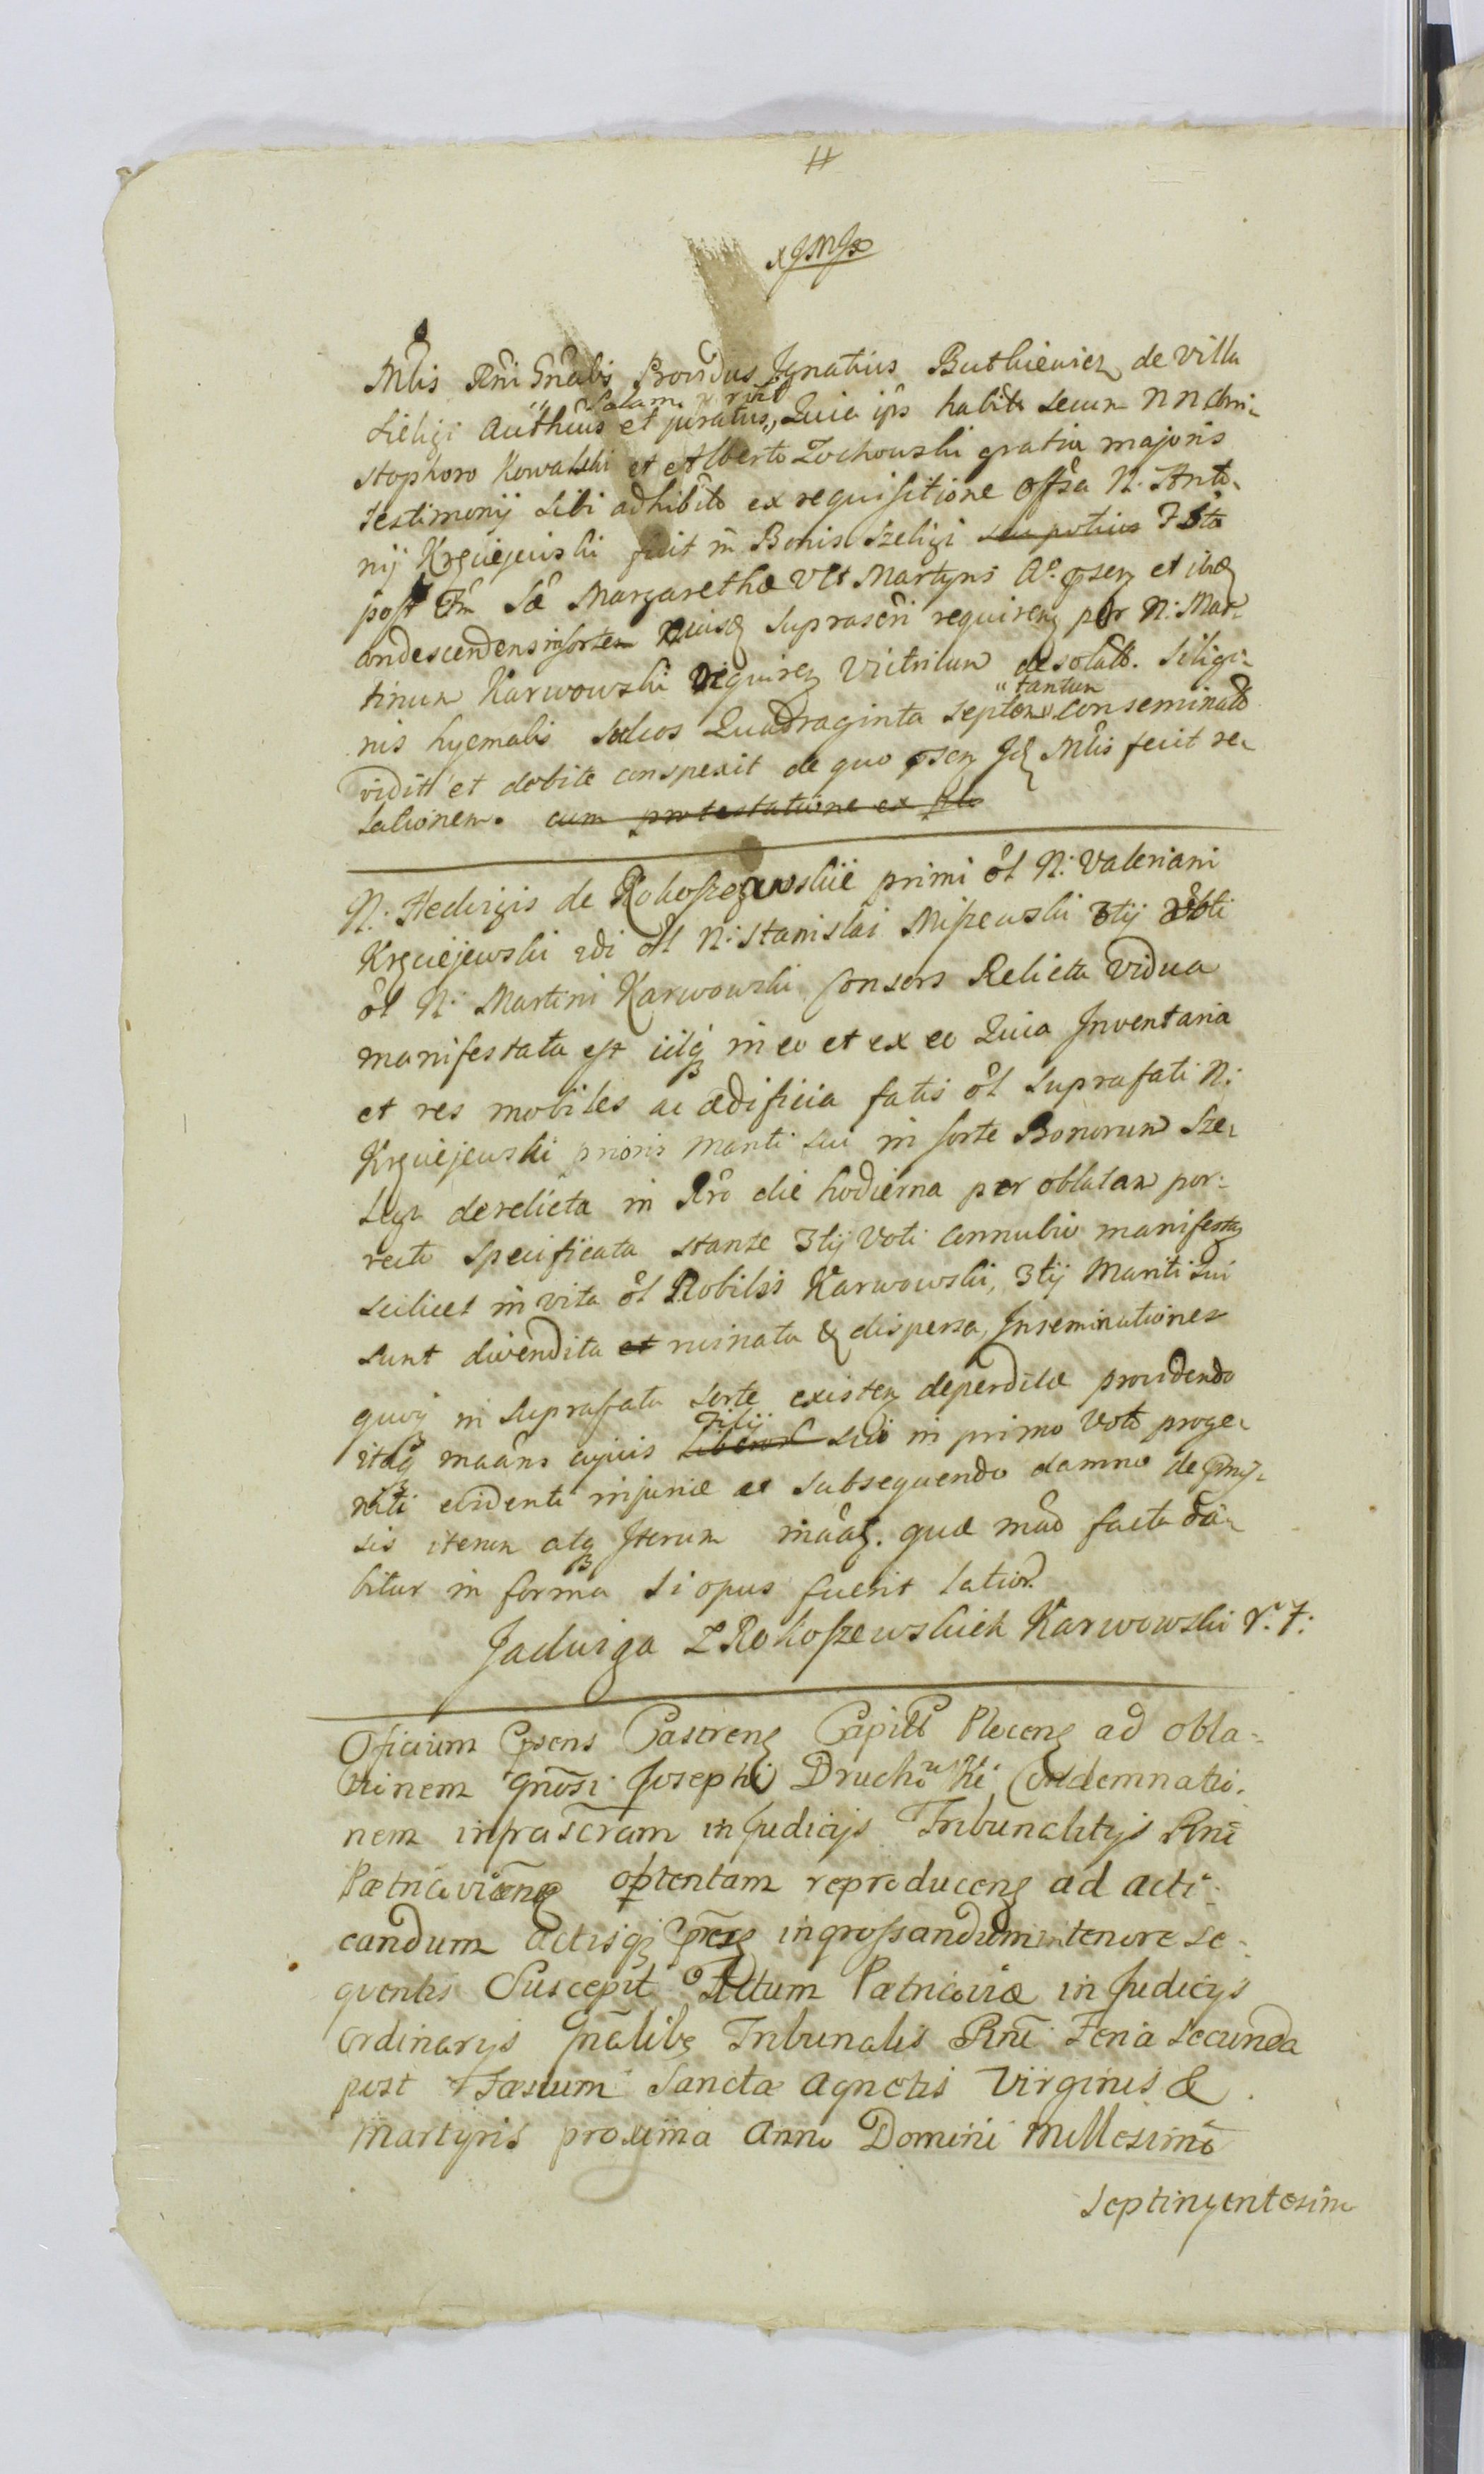 Mlis Rni Gnalis Providus Ignatius Butkiewicz de villa
Szeligi Authcus et juratus, Quia ips habitis secum NN Chri-
stophoro Kowalski et Alberto Zochowski gratia majoris
testimonij sibi adhibito ex requisitione Offsa N. Anto-
nij Krzciejewski fuit in Bonis Szeligi seu potius Fsto
post Fm Sae Margarethae V et Martyris A° psen et ibid
condescendens in sortem ejusd suprascri requiren per N: Mar-
tinum Karwowski desolatt. Siligi-
nis hyemalis sulcos Quadraginta septem "tantum" conseminatt
vidit et debite conspexit de quo psen Id Mlis fecit re-
lationem. cum protestatione ex
N: Hedvigis de Rokoszewskie primi ol N: Valeriani
Krzciejewski 2di ol N: Stanislai Miszewski 3tij Voti
ol N: Martini Karwowski Consors Relicta Vidua
manifestata est iisq in eo et ex eo Quia Inventaria
et res mobiles ac aedificia fatis ol suprafati N:
Krzciejewski prioris mariti sui in sorte Bonorum Sze-
ligi derelicta in Rro die hodierna per oblatam por-
recta specificata stante 3tij Voti connubio manifestan
scilicet in vita ol Nobilis Karwowski, 3tij Mariti sui
sunt divendita et ruinata & dispersa, Inseminationes
quoq in suprafata sorte existen deperditae providendo
itaq maans cujus Filij sui in primo Voto proge-
niti evidenti injuriae ac subsequendo damno de pmis-
sis iterum atq Iterum maat. quae mao facta da-
bitur in forma si opus fuerit latiori
Jadwiga Z Rokoszewskich Karwowski
Oficium psens Castrens Capitt Plocens ad obla-
tionem Gnosi Josephi Druchowski Condemnatio-
nem infrascram in Judicijs Tribunalitijs Rni
Petricoviens optentam reproducens ad acti-
candum actisq ingrossandum in tenore se-
quentis Suscepit Actum Petricoviae in Judicijs
ordinarijs Gnalibs Tribunalis Rni Feria secunda
post Faestum Sanctae Agnetis Virginis &
Martyris proxima Anno Domini Millesimo
septingentesimo